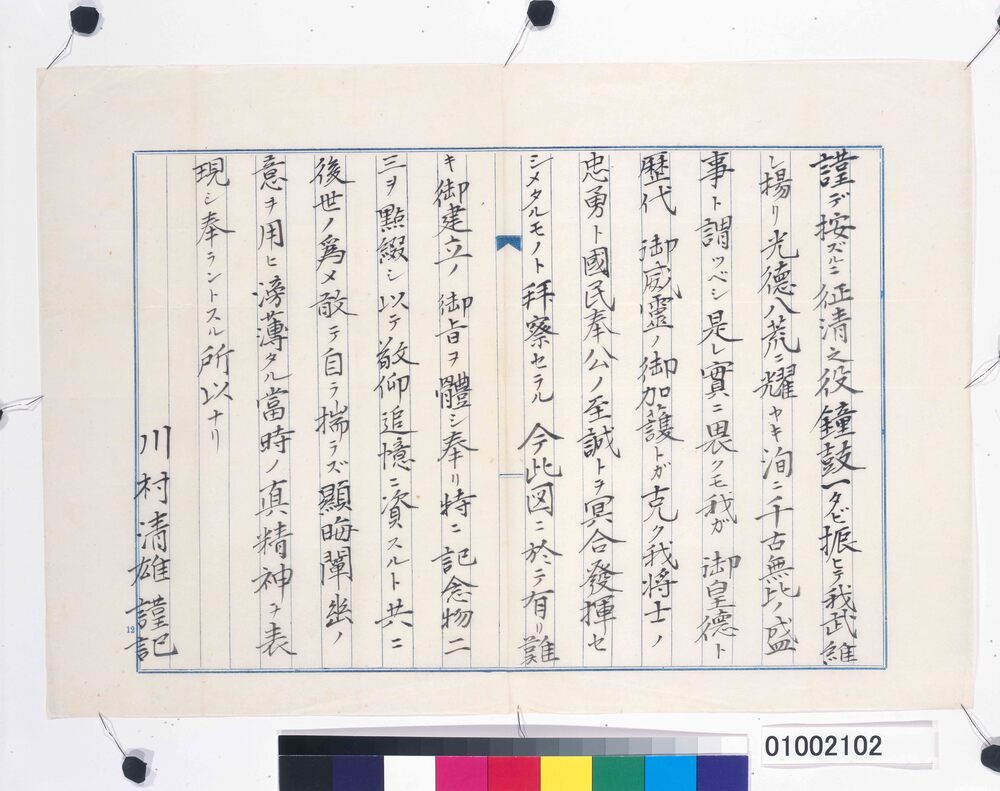 謹デ按ズルニ征清之役鐘鼓一タビ振ヒテ我武維
レ揚リ光德八荒ニ耀ヤキ洵ニ千古無比ノ盛
事ト謂ツベシ是レ實ニ畏クモ我ガ 御皇德ト
歷代 御威靈ノ御加護トガ克ク我將士ノ
忠勇ト國民奉公ノ至誠トヲ冥合發揮セ
シメタルモノト拜察セラル 今此図ニ於テ有リ難
キ御建立ノ御旨ヲ體シ奉リ特ニ記念物二
三ヲ點綴シ以テ敬仰追憶ニ資スルト共ニ
後世ノ爲メ敢テ自ラ揣ラズ顯晦闡幽ノ
意ヲ用ヒ滂薄タル當時ノ真精神ヲ表
現シ奉ラントスル所以ナリ
川村清雄 謹記
12
01002102